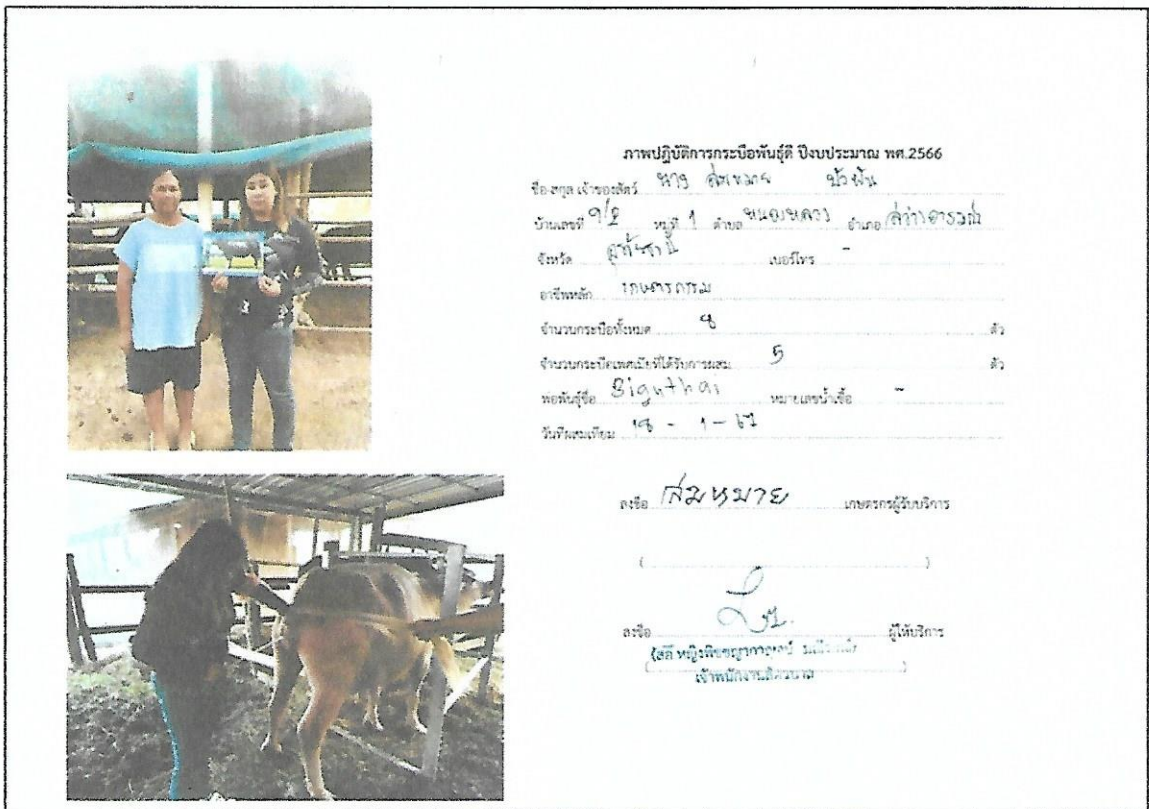 ภาพปฏิบัติการกระบือพันธุ์ดี ปีงบประมาณ พศ.2566
ชื่อ-สกุล เจ้าของสัตว์ นาง สมหมาย บัวผัน
บ้านเลขที่ 9/2 หมู่ที่ 1 ตำบล หนองหลวง อำเภอ สว่างอารมณ์
จังหวัด อุทัยธานี เบอร์โทร -
อาชีพหลัก เกษตรกรรม
จำนวนกระบือทั้งหมด 8 ตัว
จำนวนกระบือเพศเมียที่ได้รับการผสม 5 ตัว
พ่อพันธุ์ชื่อ หมายเลขน้ำเชื้อ -
วันที่ผสมเทียม 18 - 1 - 67
ลงชื่อ สมหมาย เกษตรกรผู้รับบริการ
( )
ลงชื่อ ผู้ให้บริการ
เจ้าพนักงานสัตวบาล